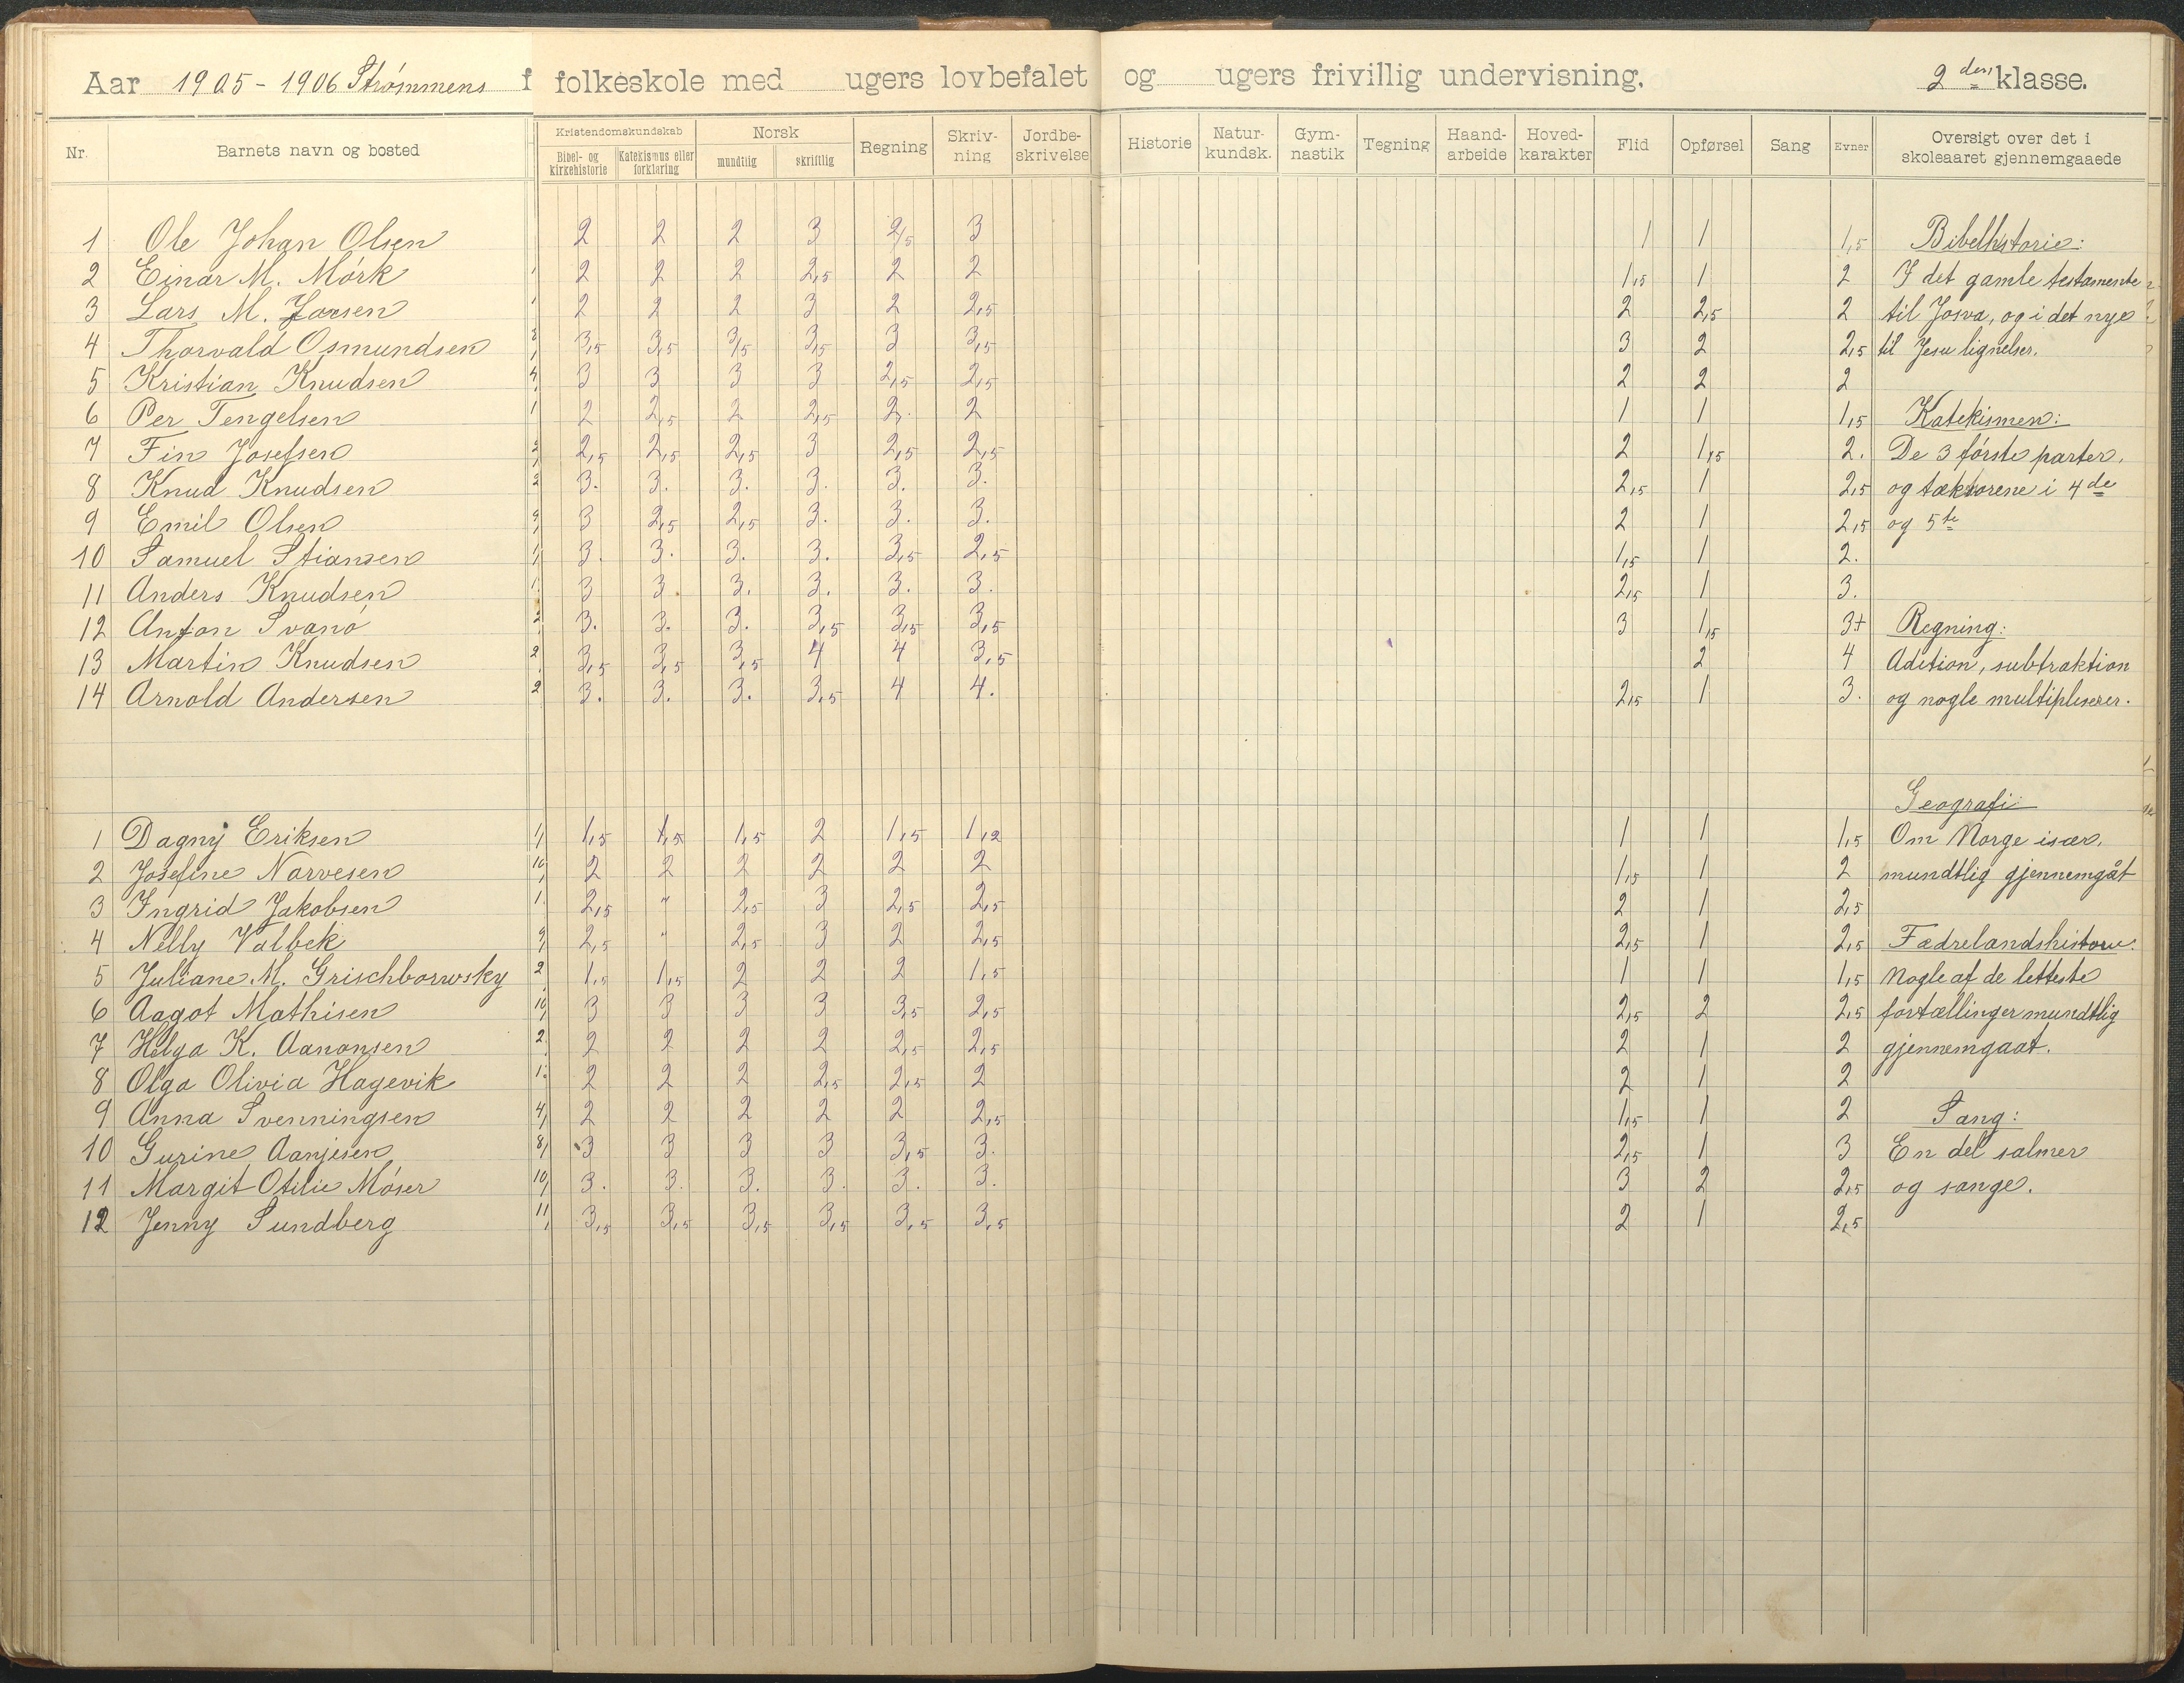 Aar 1905 - 1906 Strømmens folkeskole med ugers lovbefalet og ugers frivillig undervisning. 2 den klasse.
Nr. Barnets navn og bosted Kristendomskundskab Bibel- og kirkehistorie Katekismus eller forklaring Norsk mundtlig skriftlig Regning Skrivning Jordbeskrivelse Historie Naturkundsk. Gymnastik Tegning Haandarbeide Hovedkarakter Flid Opførsel Sang Evner Oversigt over det i skoleaaret gjennemgaaede
1 Ole Johan Olsen 2 2 2 3 2,5 3 1 1 1,5 Bibelhistorie:
2 Einar M. Mórk 2 2 2 2,5 2 2 1,5 1 2 I det gamle testamente
3 Lars M. 2 2 2 3 2 2,5 2 2,5 2 til Josva, og i det nye
4 Thorvald Osmundsen 3,5 3,5 3,5 3,5 3 3,5 3 2 2,5 til Jesu lignelser.
5 Kristian Knudsen 3 3 3 3 2,5 2,5 2 2 2
6 Per Tengelsen 2 2,5 2 2,5 2. 2 1 1 1,5 Katekismen:
7 Fin Josefsen 2,5 2,5 2,5 3 2,5 2,5 2 1,5 2. De 3 fórste parter,
8 Knud Knudsen 3. 3. 3. 3. 3. 3. 2,5 1 2,5 og tæksorene i 4de
9 Emil Olsen 3 2,5 2,5 3. 3. 3. 2 1 2,5 og 5te
10 Samuel Stiansen 3. 3. 3. 3. 3,5 2,5 1,5 1 2.
11 Anders Knudsen 3 3 3. 3. 3. 3. 2,5 1 3.
12 Anton Svanó 3. 3. 3. 3,5 3,5 3,5 3 1,5 3+ Regning:
13 Martin Knudsen 3,5 3,5 3,5 4 4 3,5 2 4 Adition, subtraktion
14 Arnold Andersen 3. 3. 3. 3,5 4 4. 2,5 1 3. og nogle multipliserer.
Geografi
1 Dagny Eriksen 1,5 1,5 1,5 2 1,5 1,2 1 1 1,5 Om Norge især,
2 Josefine Narvesen 2 2 2 2 2 2 1,5 1 2 mundtlig gjennemgåt
3 Ingrid Jakobsen 2,5 " 2,5 3 2,5 2,5 2 1 2,5
4 Nelly Valbek 2,5 " 2,5 3 2 2,5 2,5 1 2,5 Fædrelandshistorie.
5 Juliane M. Grischbowsky 1,5 1,5 2 2 2 1,5 1 1 1,5 Nogle af de letteste
6 Aagot Mathisen 3 3 3 3 3,5 2,5 2,5 2 2,5 fortællinger mundtlig
7 Helga K. Aanonsen 2 2 2 2 2,5 2,5 2 1 2 gjennemgaat.
8 Olga Olivia Hagevik 2 2 2 2,5 2,5 2 2 1 2
9 Anna Svenningsen 2 2 2 2 2 2,5 1,5 1 2 Sang:
10 Gurine Aanjesen 3 3 3 3 3,5 3. 2,5 1 3 En del salmer
11 Margit Otilie Móser 3. 3. 3. 3. 3. 3. 3 2 2,5 og sange.
12 Jenny Sundberg 3,5 3,5 3,5 3,5 3,5 3,5 2 1 2,5